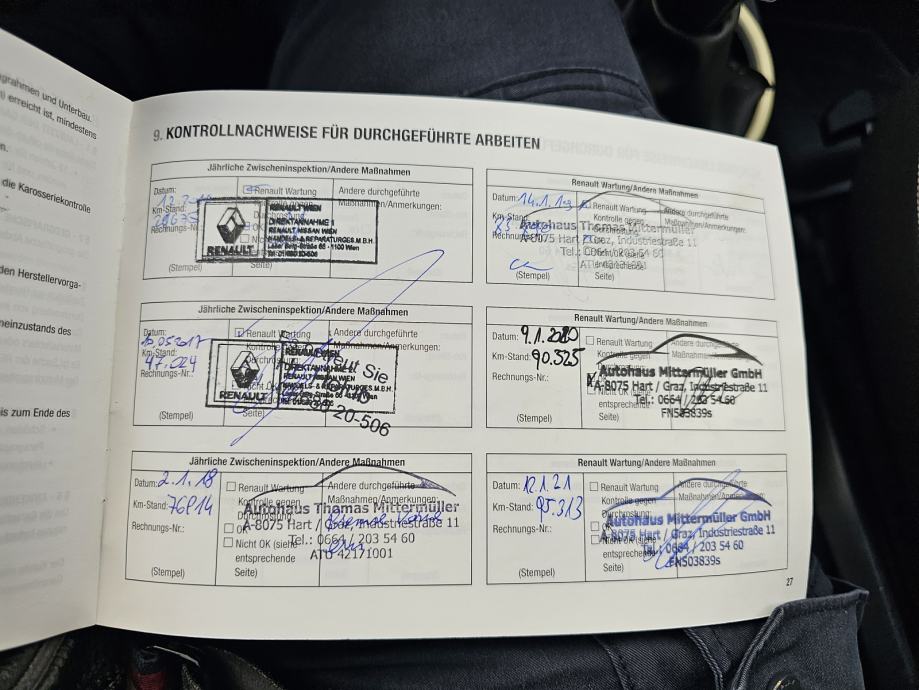 ograhmen und Unterbau.
erreicht ist, mindestens
die Karosseriekontrolle
den Herstellervorga-
neinzustands des
is zum Ende des
9. KONTROLLNACHWEISE FÜR DURCHGEFÜHRTE ARBEITEN
Jährliche Zwischeninspektion/Andere Maßnahmen
Datum:
Renault Wartung
Andere durchgeführte
Km-Stand:
Maßnahmen/Anmerkungen:
Rechnungs-Nr.:
RENAULT
RENAULT WIEN
DIREKTANNAHME 1
RENAULT NISSAN WIEN
HANDELS- & REPARATURGES.M.B.H.
(Stempel)
Seite)
Jährliche Zwischeninspektion/Andere Maßnahmen
Datum:
Renault Wartung
Andere durchgeführte
Km-Stand:
Maßnahmen/Anmerkungen:
47.024
Rechnungs-Nr.:
RENAULT
RENAULT WIEN
DIREKTANNAHME
RENAULT NISSAN WIEN
HANDELS- & REPARATURGES.M.B.H.
eut Sie
20-506
(Stempel)
Seite)
Jährliche Zwischeninspektion/Andere Maßnahmen
Datum: 2.1.18
Renault Wartung
Andere durchgeführte
Km-Stand:
Kontrolle gegen
Maßnahmen/Anmerkungen:
Autohaus Thomas Mittermüller
Rechnungs-Nr.:
OK
A-8075 Hart / Graz, Industriestraße 11
Nicht OK (siehe
Tel.: 0664 / 203 54 60
entsprechende
ATU 42171001
(Stempel)
Seite)
Renault Wartung/Andere Maßnahmen
Datum: 14.1.19
Renault Wartung
Andere durchgeführte
Km-Stand:
Kontrolle gegen
Maßnahmen/Anmerkungen:
Autohaus Thomas Mittermüller
Rechnungs-Nr.:
A-8075 Hart / Graz, Industriestraße 11
Tel.: 0664 / 203 54 60
entsprechende
(Stempel)
Seite)
Renault Wartung/Andere Maßnahmen
Datum: 9.1.2020
Renault Wartung
Andere durchgeführte
Km-Stand: 90.325
Kontrolle gegen
Maßnahmen/Anmerkungen:
Autohaus Mittermüller GmbH
Rechnungs-Nr.:
A-8075 Hart / Graz, Industriestraße 11
Tel.: 0664 / 203 54 60
FN503839s
entsprechende
(Stempel)
Seite)
Renault Wartung/Andere Maßnahmen
Datum: 12.1.21
Renault Wartung
Andere durchgeführte
Km-Stand: 95.313
Kontrolle gegen
Maßnahmen/Anmerkungen:
Autohaus Mittermüller GmbH
Rechnungs-Nr.:
A-8075 Hart / Graz, Industriestraße 11
Tel.: 0664 / 203 54 60
FN503839s
entsprechende
(Stempel)
Seite)
27